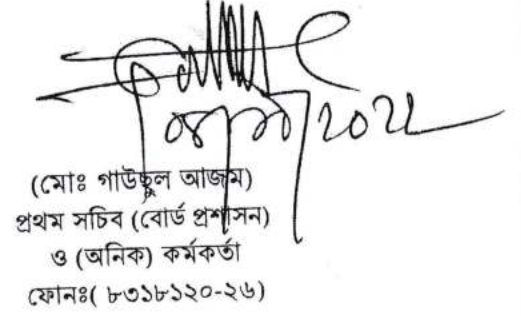 (মোঃ গাউছুল আজম)
প্রথম সচিব (বোর্ড প্রশাসন)
ও (অনিক) কর্মকর্তা
ফোনঃ( ৮৩১৮১২০-২৬)